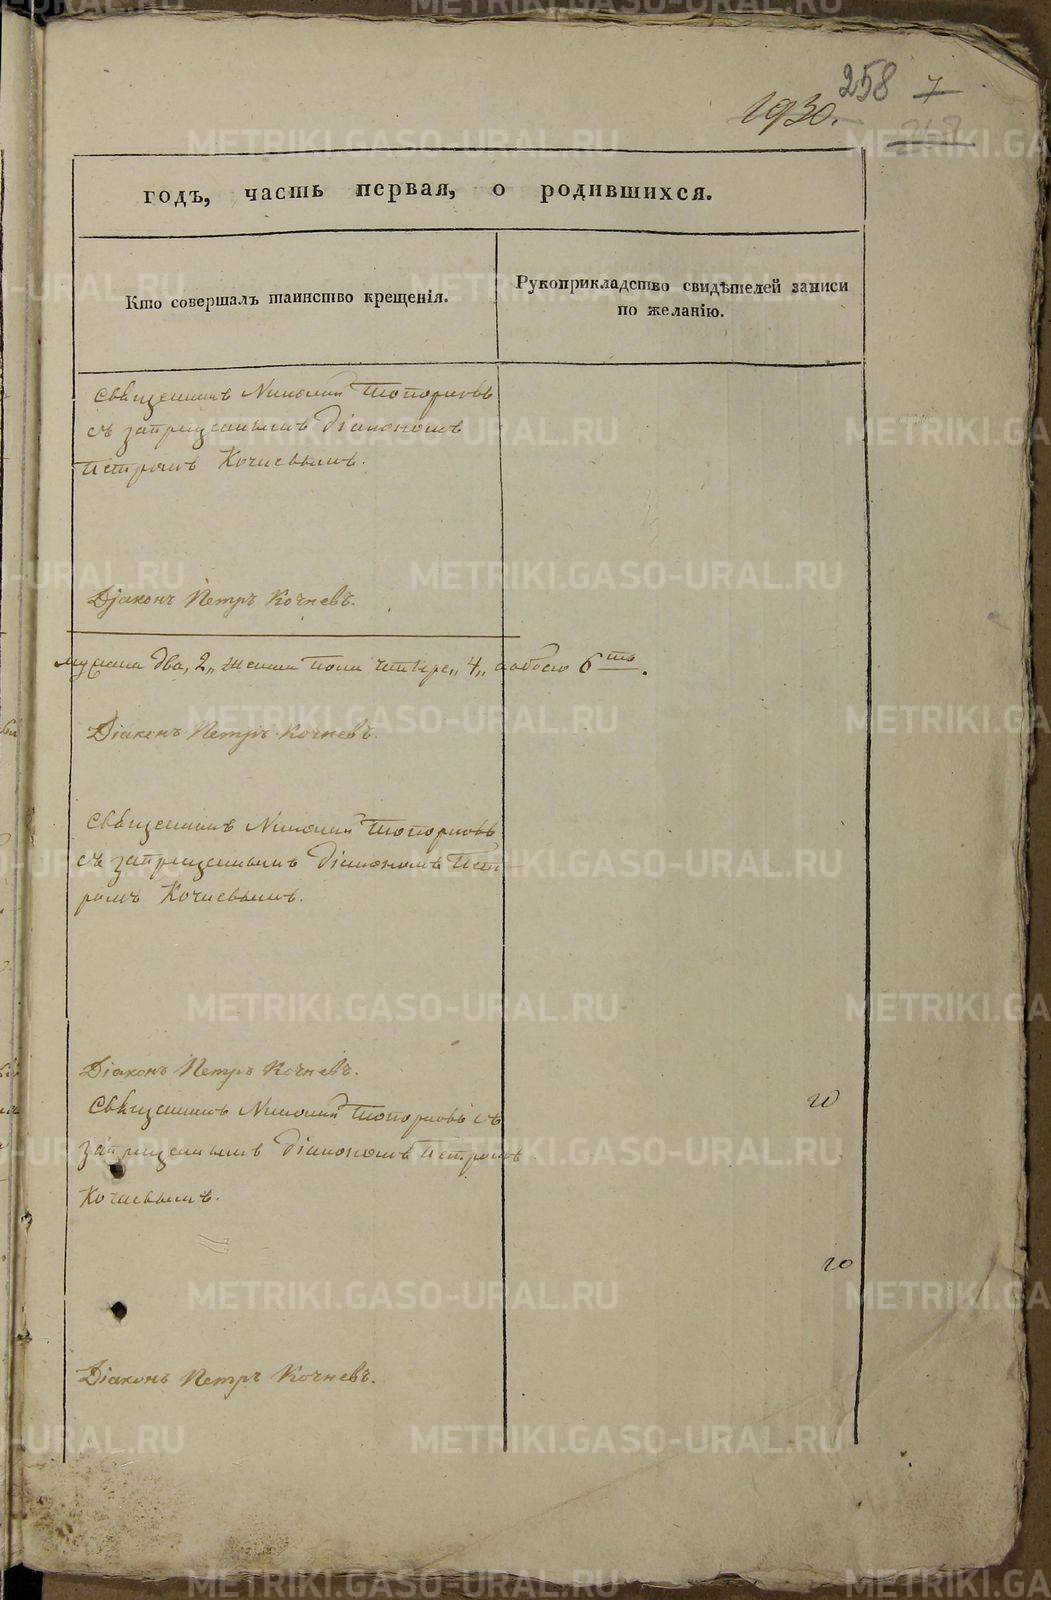 258 7
1930.
268
годъ, часть первая, о родившихся.
Кто совершалъ таинство крещенія.
Рукоприкладство свидѣтелей записи
по желанію.
Священникъ Николай Топорковъ
съ запрещеннымъ діакономъ
Петромъ Кочневымъ.
Діаконъ Петръ Кочневъ.
два, 2, женска пола четыре, 4, а обоего 6ть.
Діаконъ Петръ Кочневъ.
Священникъ Николай Топорковъ
съ запрещеннымъ діакономъ Пет-
ромъ Кочневымъ.
Діаконъ Петръ Кочневъ.
Священникъ Николай Топорковъ съ
запрещеннымъ діакономъ Петромъ
Кочневымъ.
Діаконъ Петръ Кочневъ.
METRIKI.GASO-URAL.RU